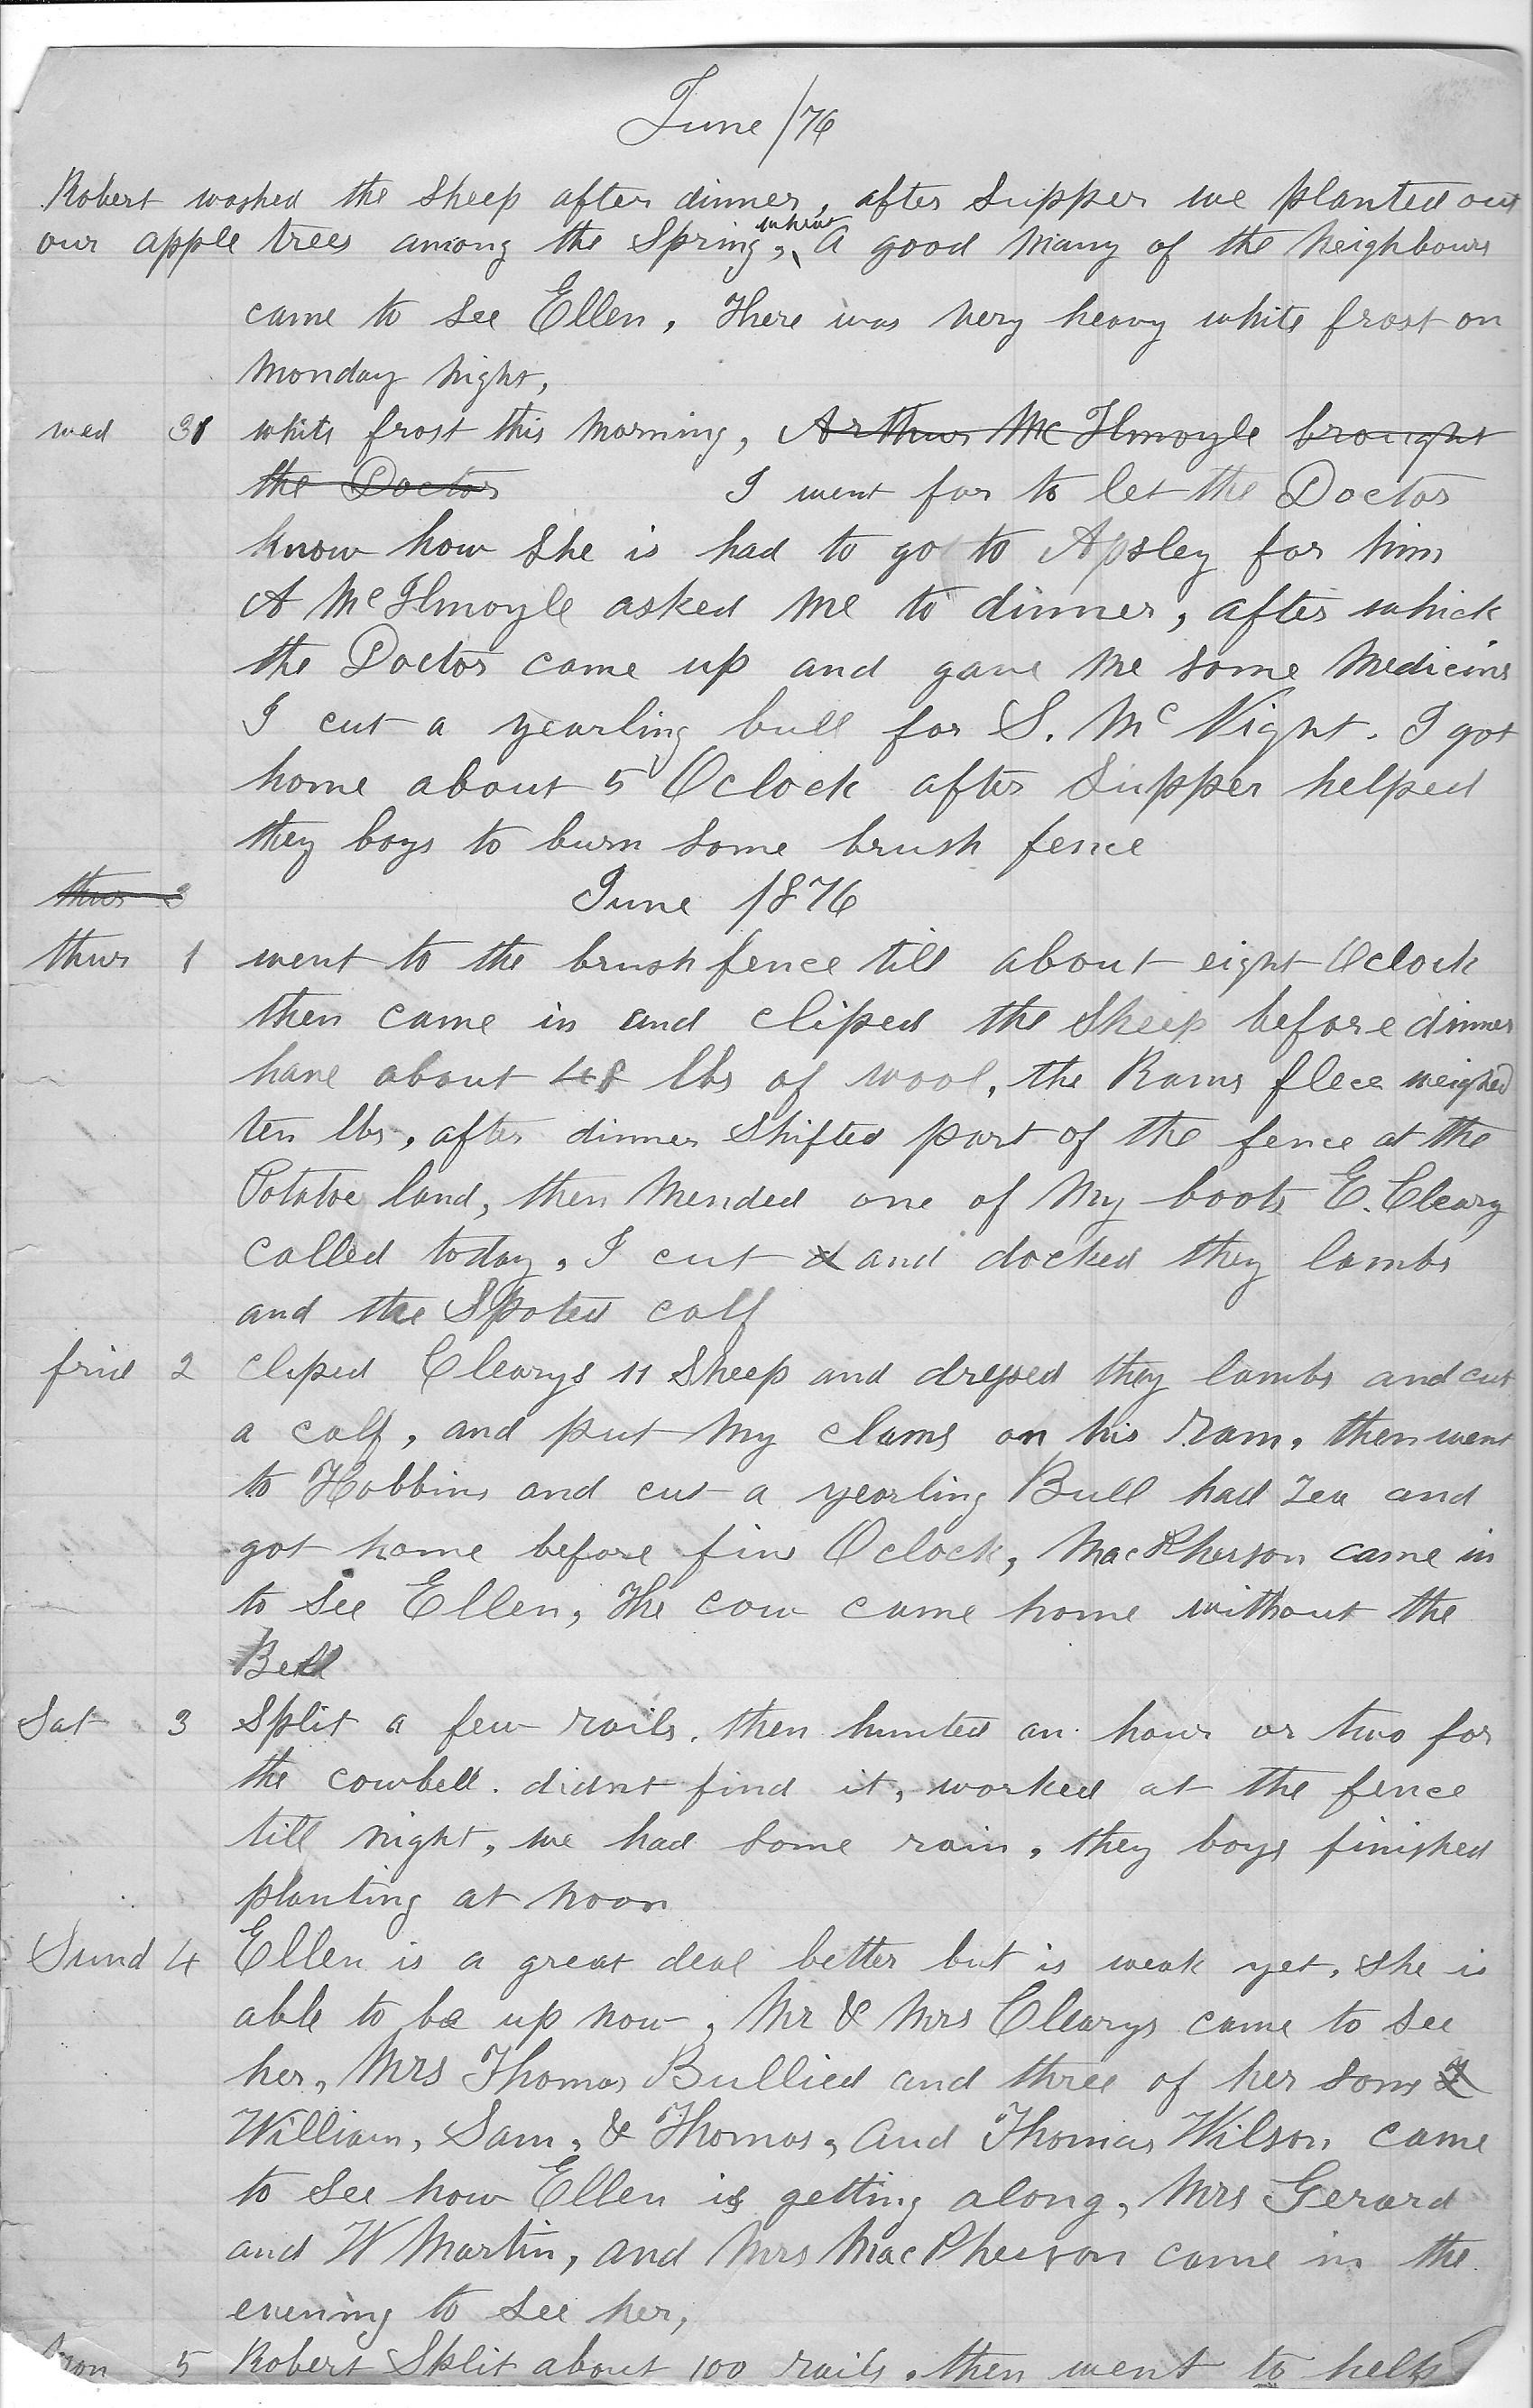 June /76
Robert washed the sheep after dinner, after Supper we planted out
our apple trees among the Spring wheat, A good many of the neighbours
came to see Ellen, There was very heavy white frost on
Monday night,
wed 31 white frost this morning, Arthur McIlmoyle brought
the Doctor I went for to let the Doctor
know how she is had to go to Apsley for him
A McIlmoyle asked me to dinner, after which
the Doctor came up and gave me some medicine
I cut a yearling bull for S. McNight. I got
home about 5 Oclock after Supper helped
they boys to burn some brush fence
thur 3 June 1876
thur 1 went to the brush fence till about eight Oclock
then came in and cliped the Sheep before dinner
have about 48 lbs of wool, the Rams flece weighed
ten lbs, after dinner Shifted part of the fence at the
Potatoe land, then mended one of my boots E. Cleary
called today, I cut & and docked they lambs
and the Spoted calf
frid 2 cliped Clearys 11 Sheep and dressed they lambs and cut
a calf, and put my clams on his ram, then went
to Hobbins and cut a yearling Bull had Tea and
got home before five Oclock, MacPherson came in
to see Ellen, The cow came home without the
Bell
Sat 3 Split a few rails, then hunted an hour or two for
the cowbell. didnt find it, worked at the fence
till night, we had some rain, they boys finished
planting at noon
Sund 4 Ellen is a great deal better but is weak yet, she is
able to be up now, Mr & Mrs Clearys came to see
her, Mrs Thomas Bullied and three of her sons
William, Sam, & Thomas, and Thomas Wilson came
to see how Ellen is getting along, Mrs Gerard
and W Martin, and Mrs MacPherson came in the
evening to see her,
Mon 5 Robert Split about 100 rails, then went to help